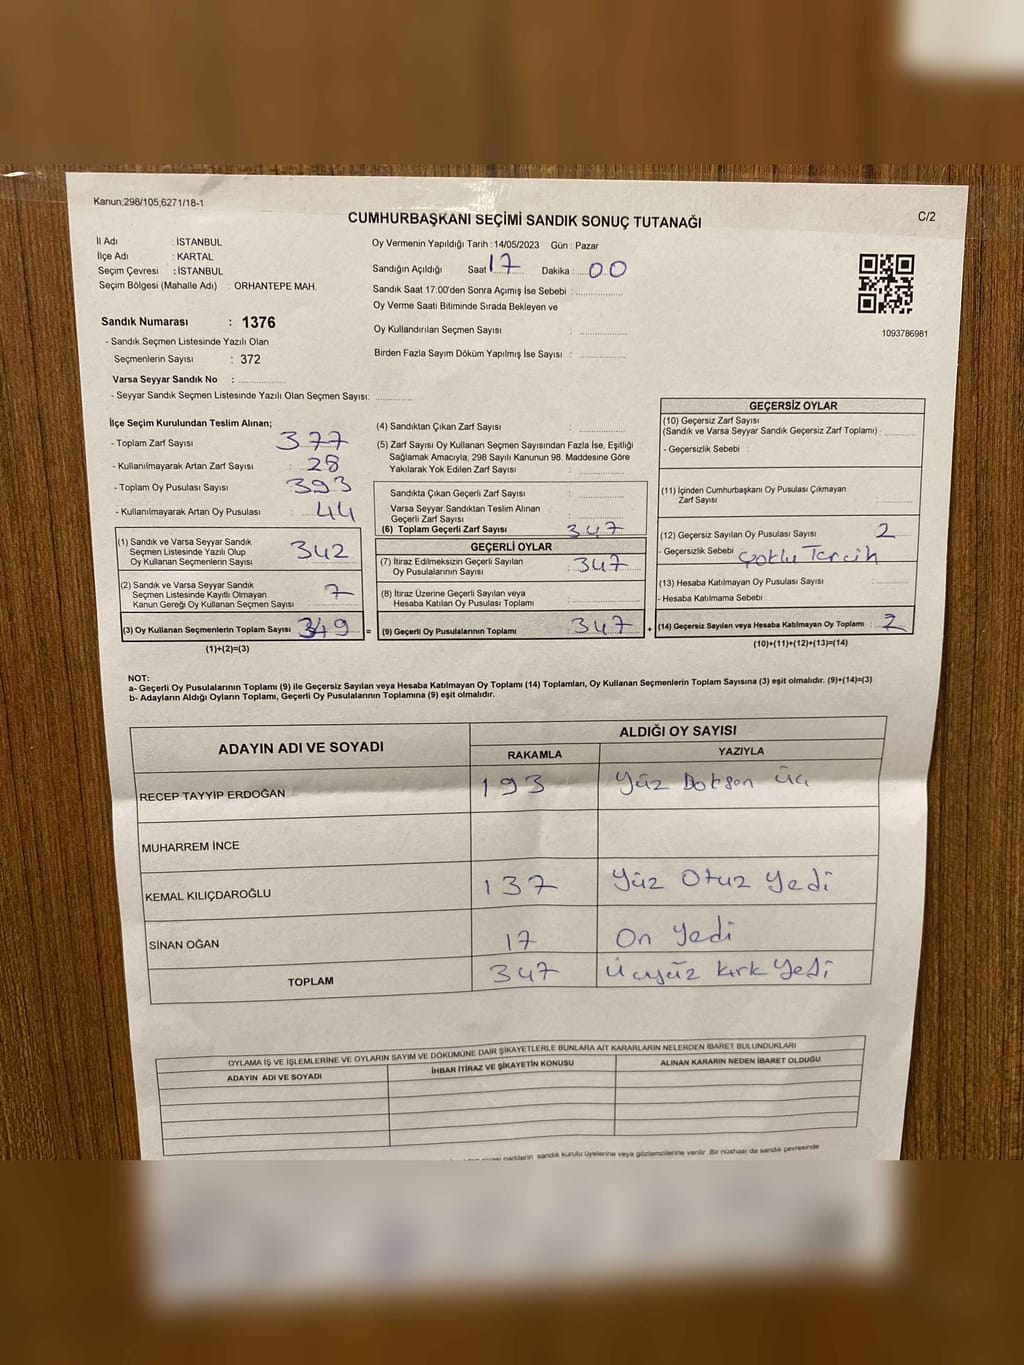 Kanun;298/105,6271/18-1
CUMHURBAŞKANI SEÇİMİ SANDIK SONUÇ TUTANAĞI
C/2
İl Adı : İSTANBUL
İlçe Adı : KARTAL
Seçim Çevresi : İSTANBUL
Seçim Bölgesi (Mahalle Adı) : ORHANTEPE MAH.
Sandık Numarası : 1376
- Sandık Seçmen Listesinde Yazılı Olan
Seçmenlerin Sayısı : 372
Varsa Seyyar Sandık No : ...............
- Seyyar Sandık Seçmen Listesinde Yazılı Olan Seçmen Sayısı: ............
Oy Vermenin Yapıldığı Tarih : 14/05/2023 Gün : Pazar
Sandığın Açıldığı Saat 17 Dakika : 00
Sandık Saat 17:00'den Sonra Açımış İse Sebebi : ...............
Oy Verme Saati Bitiminde Sırada Bekleyen ve
Oy Kullandırılan Seçmen Sayısı : ...............
Birden Fazla Sayım Döküm Yapılmış İse Sayısı : ...............
1093786981
İlçe Seçim Kurulundan Teslim Alınan;
- Toplam Zarf Sayısı : 377
- Kullanılmayarak Artan Zarf Sayısı : 28
- Toplam Oy Pusulası Sayısı : 393
- Kullanılmayarak Artan Oy Pusulası : 44
(1) Sandık ve Varsa Seyyar Sandık
Seçmen Listesinde Yazılı Olup
Oy Kullanan Seçmenlerin Sayısı : 342
(2) Sandık ve Varsa Seyyar Sandık
Seçmen Listesinde Kayıtlı Olmayan
Kanun Gereği Oy Kullanan Seçmen Sayısı : 7
(3) Oy Kullanan Seçmenlerin Toplam Sayısı : 349 =
(1)+(2)=(3)
(4) Sandıktan Çıkan Zarf Sayısı : ...............
(5) Zarf Sayısı Oy Kullanan Seçmen Sayısından Fazla İse, Eşitliği
Sağlamak Amacıyla, 298 Sayılı Kanunun 98. Maddesine Göre
Yakılarak Yok Edilen Zarf Sayısı : ...............
Sandıkta Çıkan Geçerli Zarf Sayısı : ...............
Varsa Seyyar Sandıktan Teslim Alınan
Geçerli Zarf Sayısı : ...............
(6) Toplam Geçerli Zarf Sayısı : 347
GEÇERLİ OYLAR
(7) İtiraz Edilmeksizin Geçerli Sayılan
Oy Pusulalarının Sayısı : 347
(8) İtiraz Üzerine Geçerli Sayılan veya
Hesaba Katılan Oy Pusulası Toplamı : ...............
(9) Geçerli Oy Pusulalarının Toplamı : 347 +
GEÇERSİZ OYLAR
(10) Geçersiz Zarf Sayısı
(Sandık ve Varsa Seyyar Sandık Geçersiz Zarf Toplamı) : ............
- Geçersizlik Sebebi :
(11) İçinden Cumhurbaşkanı Oy Pusulası Çıkmayan
Zarf Sayısı : ............
(12) Geçersiz Sayılan Oy Pusulası Sayısı : 2
- Geçersizlik Sebebi : Çoklu Tercih
(13) Hesaba Katılmayan Oy Pusulası Sayısı : ............
- Hesaba Katılmama Sebebi :
(14) Geçersiz Sayılan veya Hesaba Katılmayan Oy Toplamı : 2
(10)+(11)+(12)+(13)=(14)
NOT:
a- Geçerli Oy Pusulalarının Toplamı (9) ile Geçersiz Sayılan veya Hesaba Katılmayan Oy Toplamı (14) Toplamları, Oy Kullanan Seçmenlerin Toplam Sayısına (3) eşit olmalıdır. (9)+(14)=(3)
b- Adayların Aldığı Oyların Toplamı, Geçerli Oy Pusulalarının Toplamına (9) eşit olmalıdır.
ADAYIN ADI VE SOYADI
ALDIĞI OY SAYISI
RAKAMLA YAZIYLA
RECEP TAYYİP ERDOĞAN 193 Yüz Doksan Üç
MUHARREM İNCE
KEMAL KILIÇDAROĞLU 137 Yüz Otuz Yedi
SİNAN OĞAN 17 On Yedi
TOPLAM 347 Üçyüz Kırk Yedi
OYLAMA İŞ VE İŞLEMLERİNE VE OYLARIN SAYIM VE DÖKÜMÜNE DAİR ŞİKAYETLERLE BUNLARA AİT KARARLARIN NELERDEN İBARET BULUNDUKLARI
ADAYIN ADI VE SOYADI İHBAR İTİRAZ VE ŞİKAYETİN KONUSU ALINAN KARARIN NEDEN İBARET OLDUĞU
partilerin sandık kurulu üyelerine veya gözlemcilerine verilir. Bir nüshası da sandık çevresinde